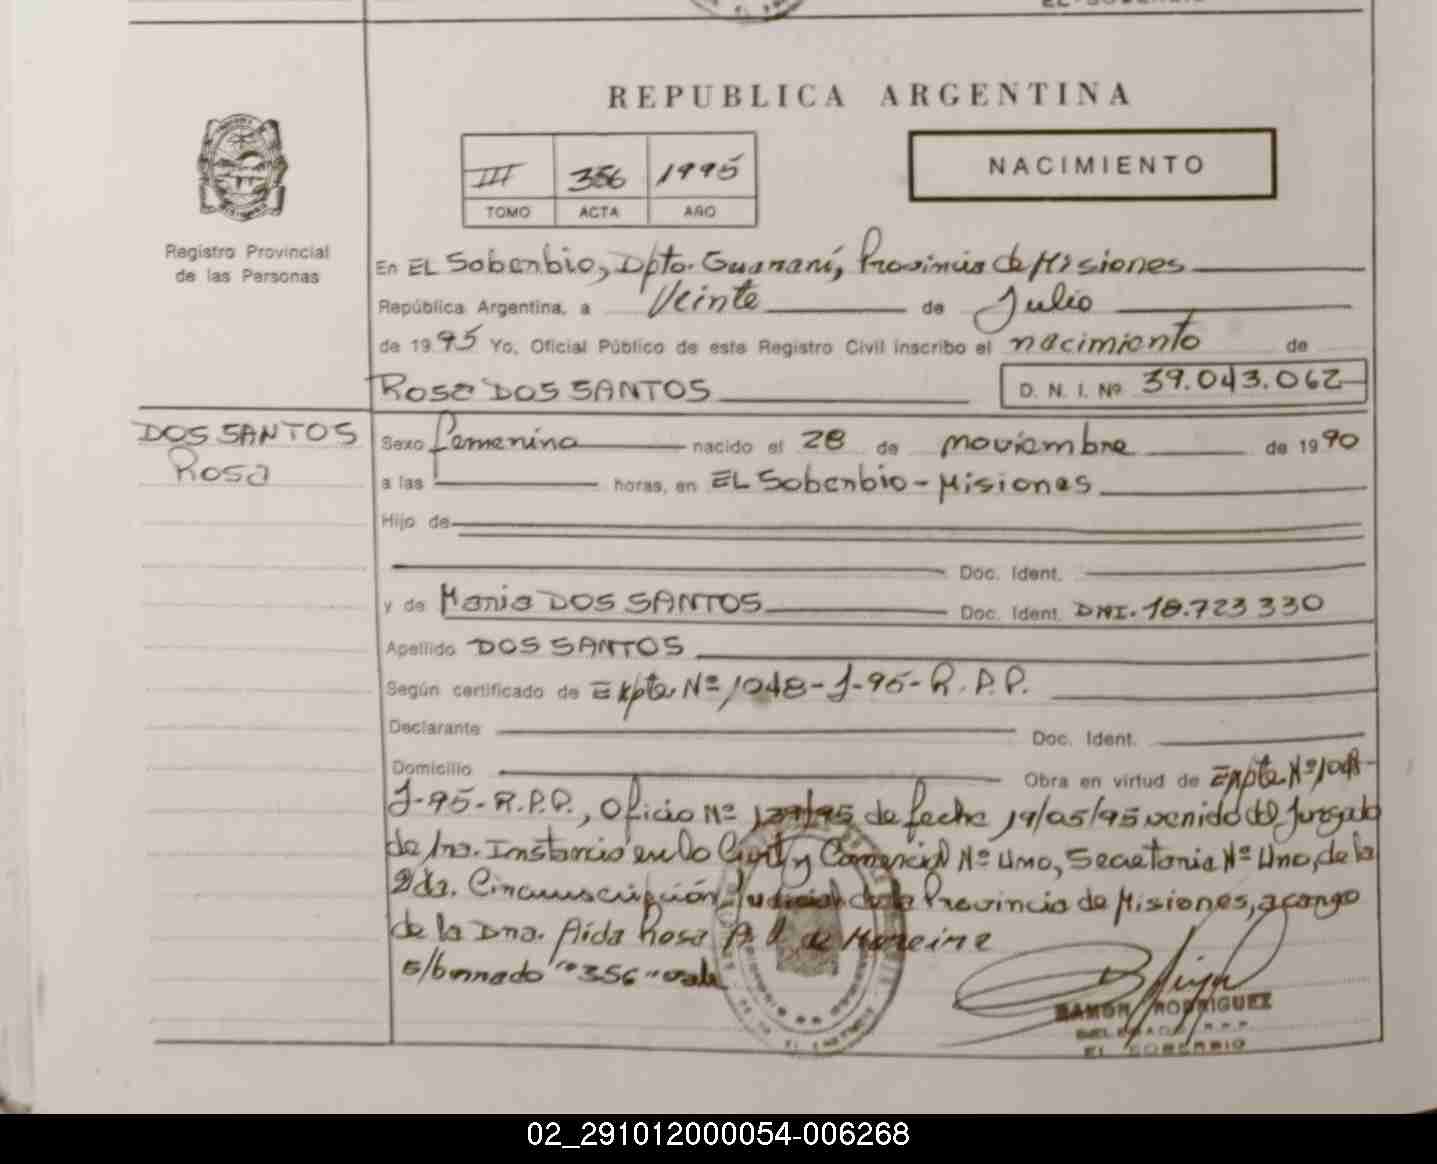 REPUBLICA ARGENTINA
III 356 1995
TOMO ACTA AÑO
NACIMIENTO
Registro Provincial
de las Personas
En EL Soberbio, Dpto. Guaraní, Provincia de Misiones
República Argentina, a Veinte de Julio
de 1995 Yo, Oficial Público de este Registro Civil inscribo el nacimiento de
Rosa DOS SANTOS D. N. I. Nº 39.043.062
DOS SANTOS
Rosa
Sexo femenino nacido el 28 de noviembre de 1990
a las horas, en EL Soberbio - Misiones
Hijo de
Doc. Ident.
y de Maria DOS SANTOS Doc. Ident. DNI. 18.723 330
Apellido DOS SANTOS
Según certificado de Expte Nº 1048-J-95-R.P.P.
Declarante Doc. Ident.
Domicilio Obra en virtud de Expte Nº 1048-
J-95-R.P.P., Oficio Nº de fecha 19/05/95 venido del Juzgado
de 1ra. Instancia en lo Civil y Comercial Nº Uno, Secretaria Nº Uno, de la
2da. Circunscripción Judicial de la Provincia de Misiones, a cargo
de la Dra. Aida Rosa de Moreira
S/borrado "356" vale
RAMON RODRIGUEZ
DELEGADO R.P.P.
EL SOBERBIO
02_291012000054-006268